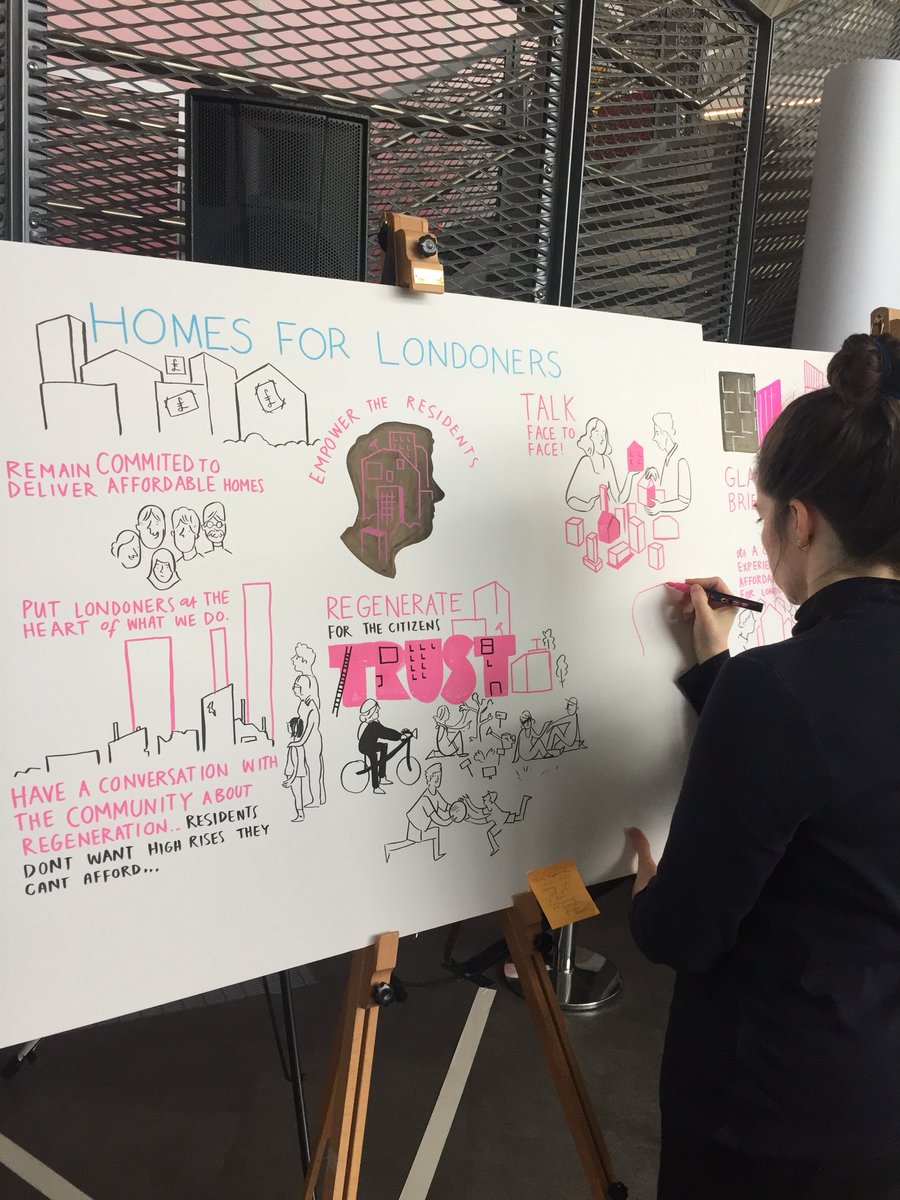 HOMES FOR LONDONERS
£
£
£
REMAIN COMMITED TO
DELIVER AFFORDABLE HOMES
EMPOWER THE RESIDENTS
TALK
FACE TO
FACE!
PUT LONDONERS at THE
HEART of WHAT WE DO.
REGENERATE
FOR THE CITIZENS
TRUST
HAVE A CONVERSATION WITH
THE COMMUNITY ABOUT
REGENERATION... RESIDENTS
DONT WANT HIGH RISES THEY
CANT AFFORD...